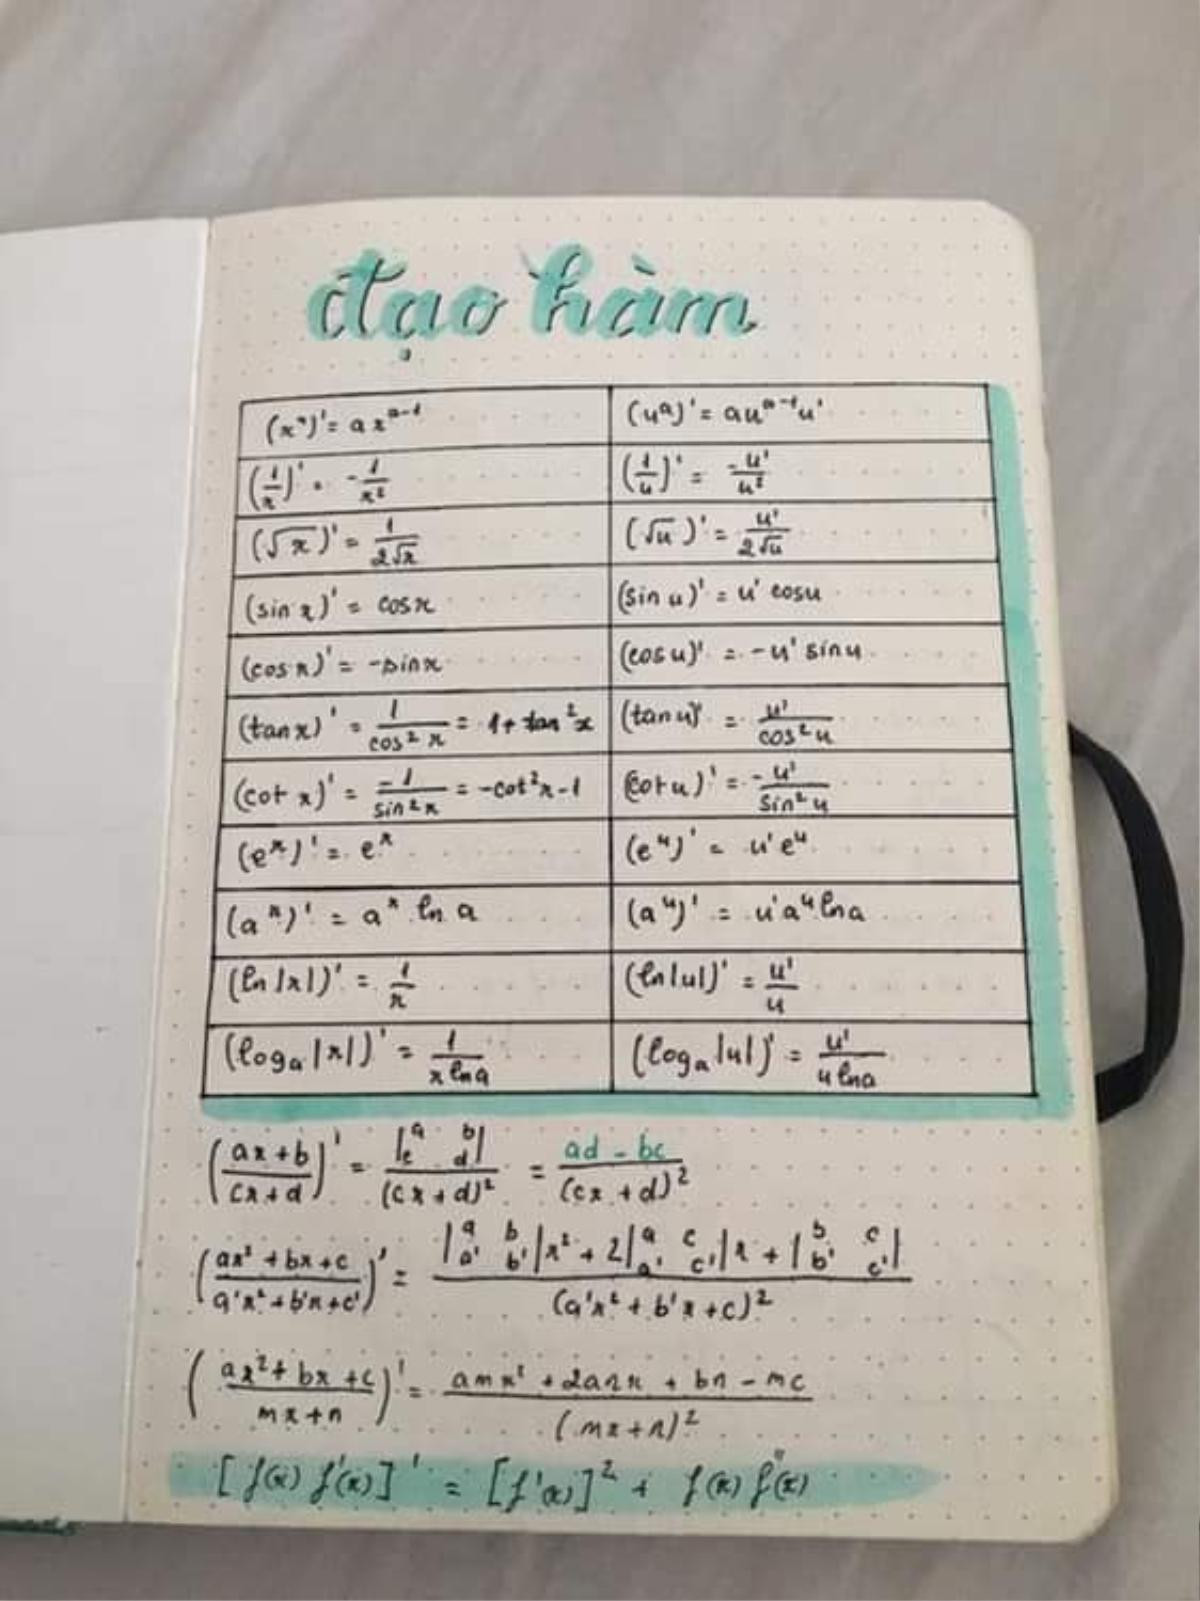 đạo hàm
(xᵃ)' = a xᵃ⁻¹ (uᵃ)' = a uᵃ⁻¹ u'
(1/x)' = -1/x² (1/u)' = -u'/u²
(√x)' = 1/(2√x) (√u)' = u'/(2√u)
(sin x)' = cos x (sin u)' = u' cos u
(cos x)' = -sin x (cos u)' = -u' sin u
(tan x)' = 1/cos² x = 1 + tan² x (tan u)' = u'/cos² u
(cot x)' = -1/sin² x = -cot² x - 1 (cot u)' = -u'/sin² u
(eˣ)' = eˣ (eᵘ)' = u' eᵘ
(aˣ)' = aˣ ln a (aᵘ)' = u' aᵘ ln a
(ln |x|)' = 1/x (ln |u|)' = u'/u
(logₐ |x|)' = 1/(x ln a) (logₐ |u|)' = u'/(u ln a)
((ax + b)/(cx + d))' = |a b; c d|/(cx + d)² = (ad - bc)/(cx + d)²
((ax² + bx + c)/(a'x² + b'x + c'))' = (|a b; a' b'| x² + 2 |a c; a' c'| x + |b c; b' c'|)/(a'x² + b'x + c)²
((ax² + bx + c)/(mx + n))' = (amx² + 2anx + bn - mc)/(mx + n)²
[f(x) f'(x)]' = [f'(x)]² + f(x) f''(x)